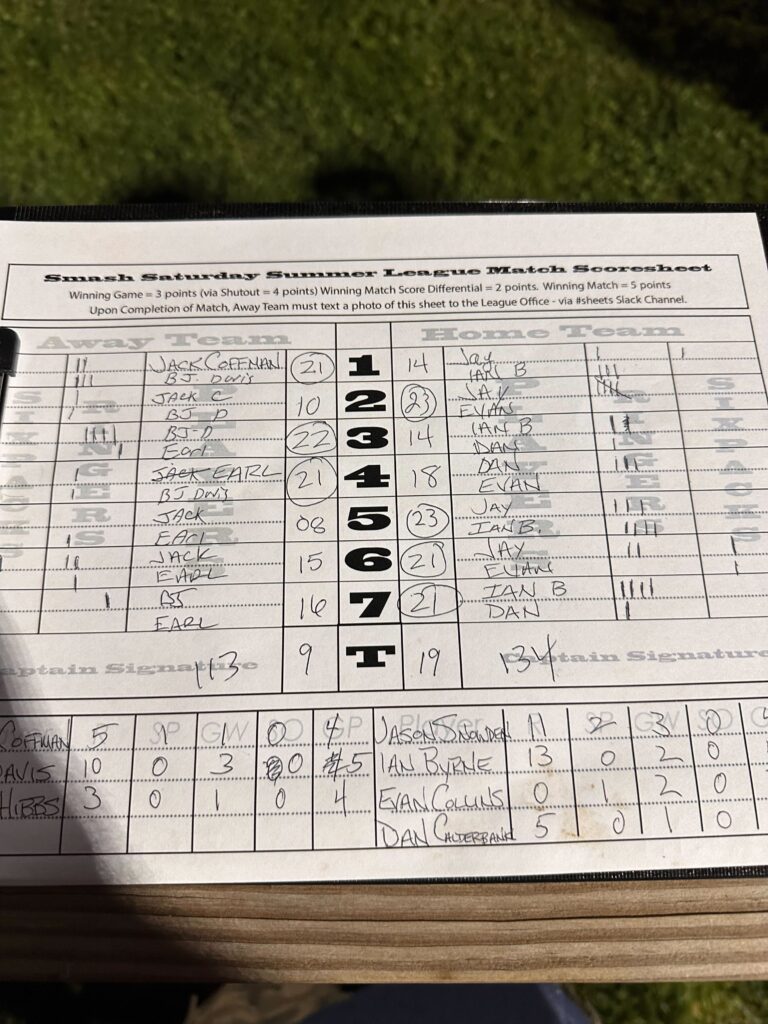 Smash Saturday Summer League Match Scoresheet
Winning Game = 3 points (via Shutout = 4 points) Winning Match Score Differential = 2 points. Winning Match = 5 points
Upon Completion of Match, Away Team must text a photo of this sheet to the League Office - via #sheets Slack Channel.
Away Team Home Team
JACK COFFMAN 21 1 14 Jay
BJ. Davis IAN B
JACK C 10 2 23 JAY
BJ D EVAN
BJ-D 22 3 14 IAN B
Earl DAN
JACK EARL 21 4 18 DAN
BJ Davis EVAN
JACK 08 5 23 JAY
EARL IAN B.
JACK 15 6 21 JAY
EARL EVAN
BJ 16 7 21 IAN B
EARL DAN
Captain Signature 113 9 T 19 134 Captain Signature
SP GW SO GP Player SP GW SO
COFFMAN 5 1 1 0 4 JASON SNOWDEN 11 2 3 0
DAVIS 10 0 3 0 5 IAN BYRNE 13 0 2 0
HIBBS 3 0 1 0 4 EVAN COLLINS 0 1 2 0
DAN CALDERBANK 5 0 1 0